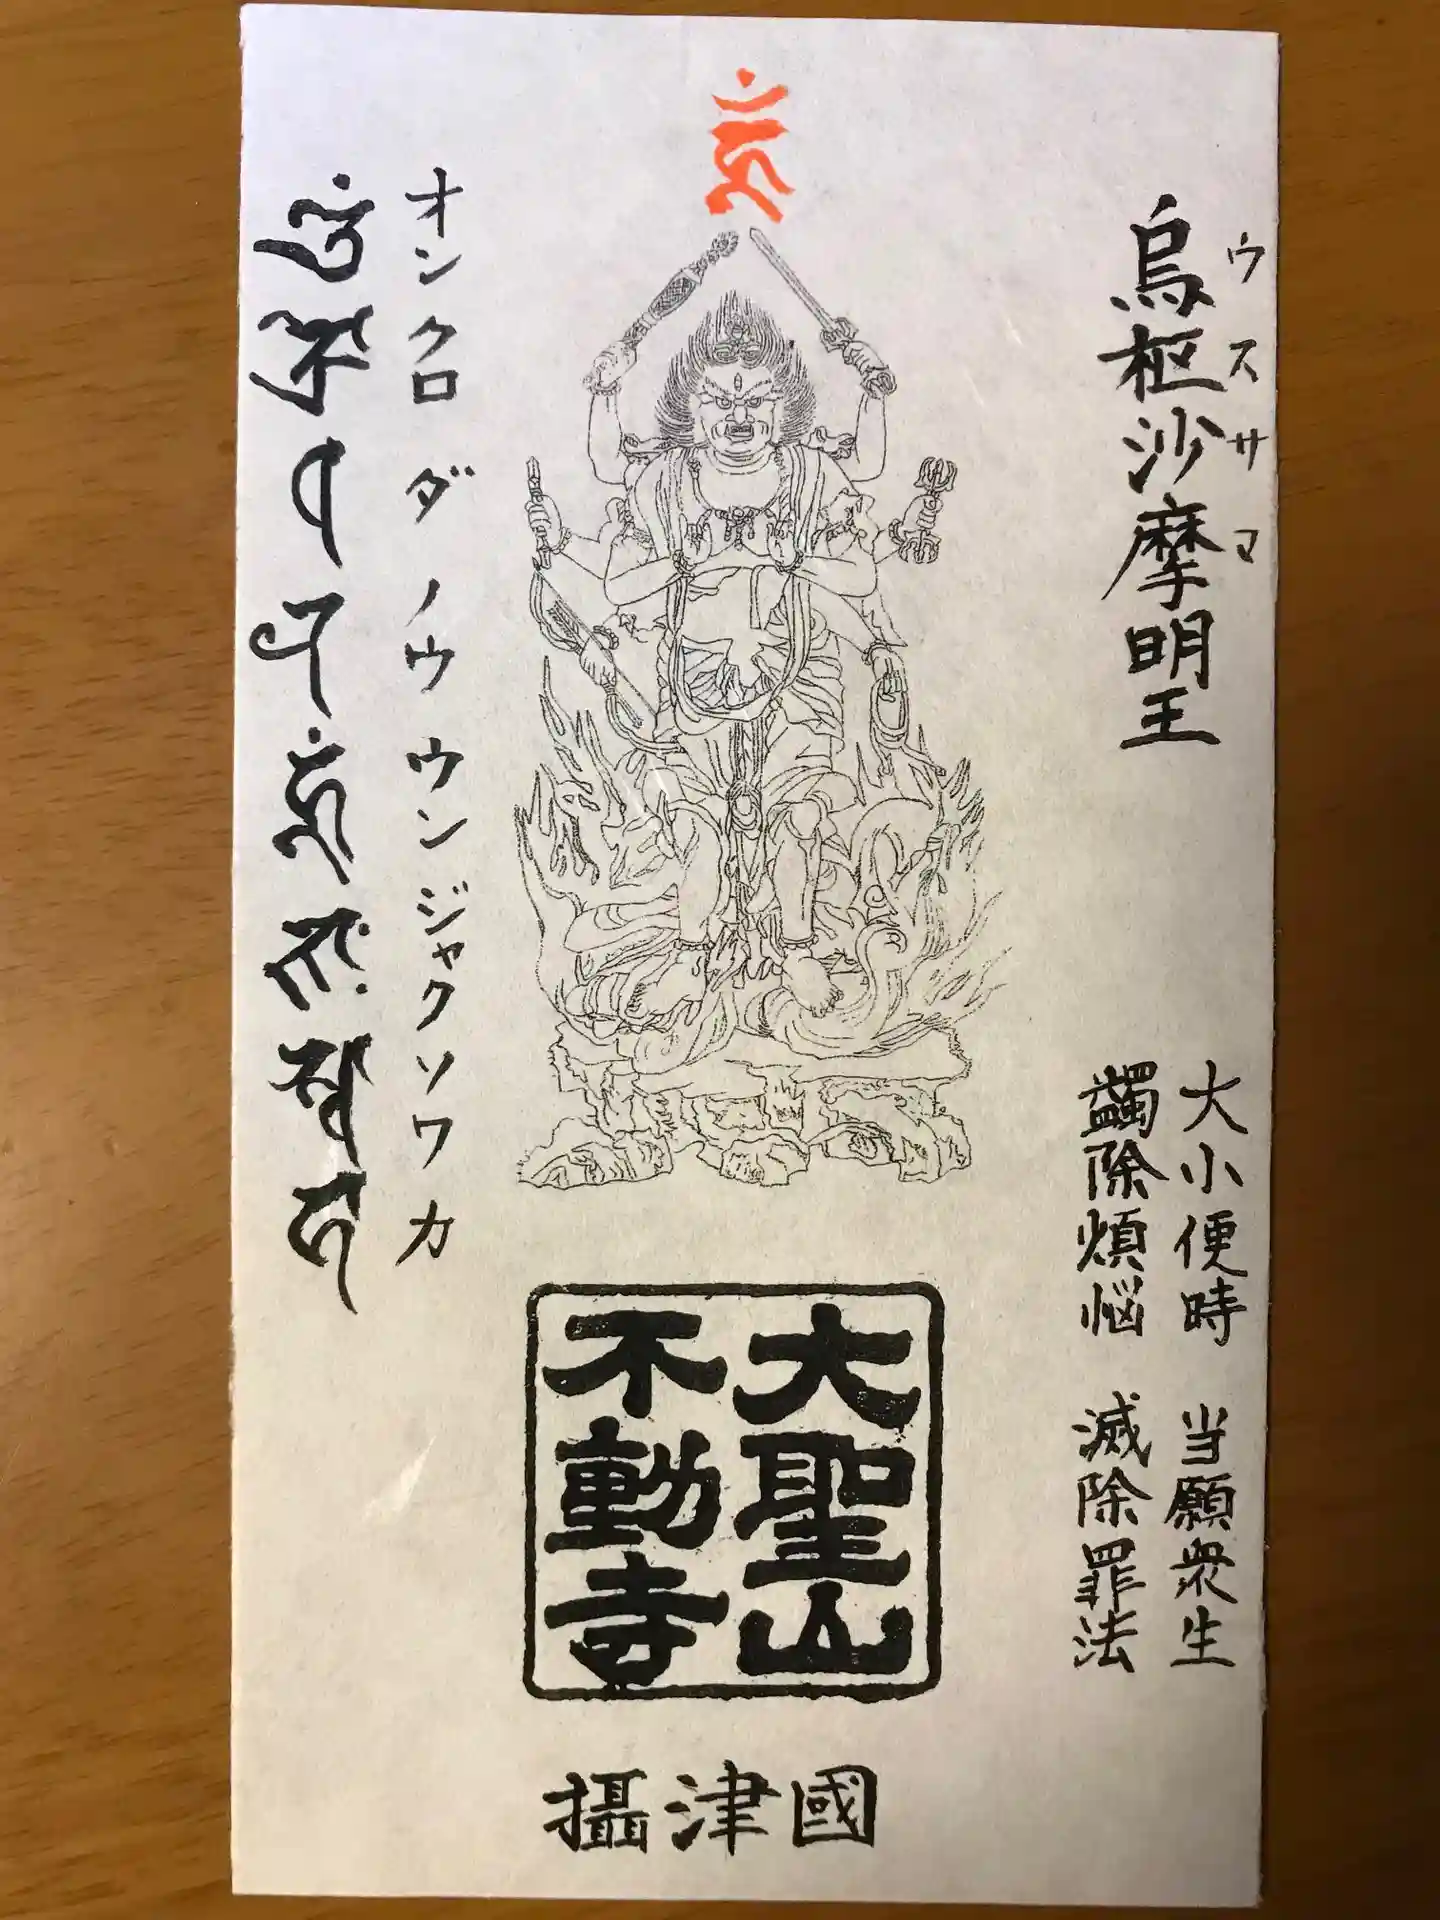 ウスサマ
烏枢沙摩明王
大小便時 当願衆生
蠲除煩悩 滅除罪法
大聖山
不動寺
攝津國
オンクロダノウウンジャクソワカ